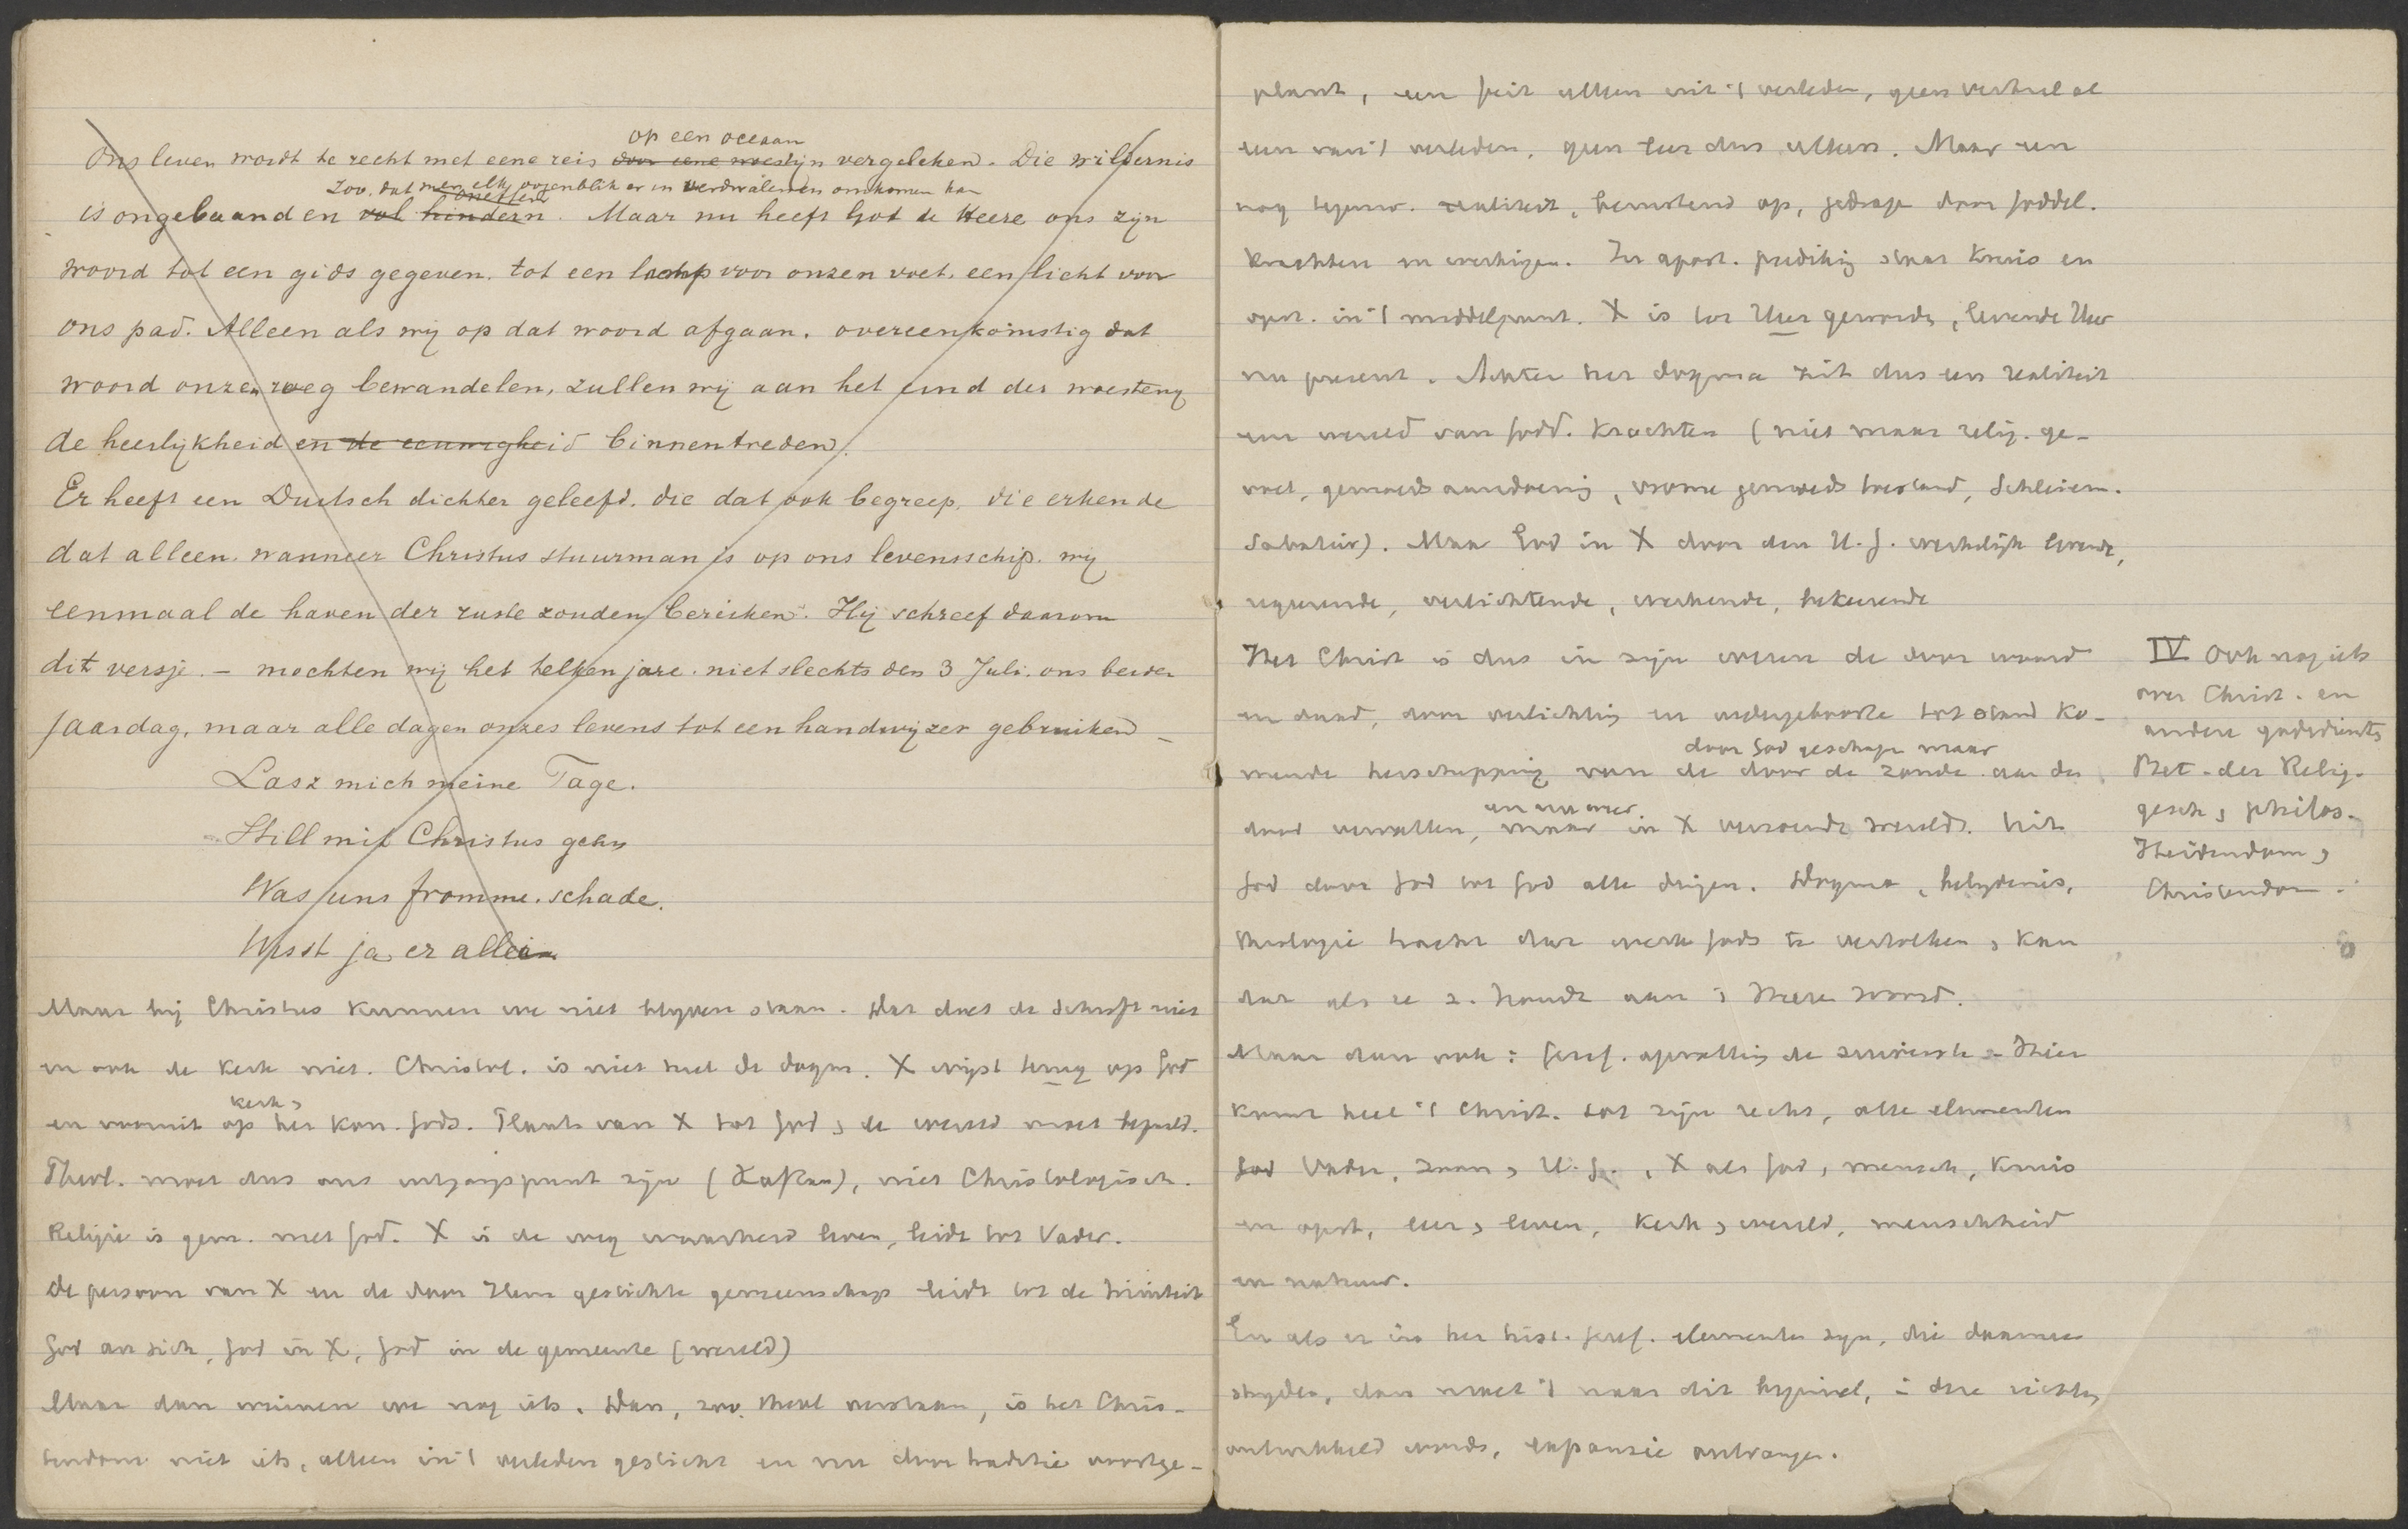 op een oceaan
Ons leven wordt te recht met eene reis door eene woestijn vergeleken. Die wildernis
zoo. dat men elk oogenblik er in verdwalen en omkomen kan
is ongebaand en vol hindern. Maar nu heeft God de Heere ons zijn
woord tot een gids gegeven. tot een lamp voor onzen voet. een licht voor
ons pad. Alleen als wij op dat woord afgaan. overeenkomstig dat
woord onzen weg bewandelen, zullen wij aan het eind der woestenij
de heerlijkheid en de eeuwigheid binnentreden.
Er heeft een Duitsch dichter geleefd. die dat ook begreep. die erkende
dat alleen. wanneer Christus stuurman is op ons levensschip. wij
eenmaal de haven der ruste zouden bereiken. Hij schreef daarom
dit versje. – mochten wij het telken jare. niet slechts den 3 Juli. ons beider
jaardag, maar alle dagen onzes levens tot een handwijzer gebruiken –
Lasz mich meine Tage.
Still mit Christus gehn
Was uns fromme. schade.
Weisst ja er allein
Maar bij Christus kunnen we niet blijven staan. Dat doet de Schrift niet
en ook de Kerk niet. Christol. is niet heel de dogm. X wijst terug op God
kerk,
en vooruit op het kon. Gods. Plaats van X tot God, de wereld moet bepaald.
Theol. moet dus ons uitgangspunt zijn, niet Christologisch.
Religie is gem. met God. X is de weg waarheid leven, leidt tot Vader.
De persoon van X en de door Hem gestichte gemeenschap leidt tot de triniteit
God an sich, God in X, God in de gemeente (wereld)
Maar dan winnen we nog iets. Dan, zoo theol verstaan, is het Chris-
tendom niet iets, alleen in 't verleden gesticht en nu door traditie voortge-
plant, een feit alleen uit 't verleden, geen verhaal al
een van 't verleden, geen leer dus alleen. Maar een
nog tegenw. realiteit, berustend op, gedrage door goddel.
krachten en werkingen. In apost. prediking staat kruis en
opst. in 't middelpunt. X is tot Heer geworden, levende Heer
nu present. Achter het dogma zit dus een realiteit
een wereld van godd. krachten (niet maar relig. ge-
voel, gemoedsaandoening, vrome gemoedstoestand, Schleierm.
Sabatier). Maar God in X door den H.G. werkelijk levende,
regeerende, verlichtende, werkende, bekeerende
Het Christ is dus in zijn wezen de door woord
en daad, door verlichting en wedergeboorte tot stand ko-
door God geschape maar
mende herschepping van de door de zonde aan den
en nu weer
dood vervallen, maar in X verzoende wereld. Uit
God door God tot God alle dingen. Dogma, belijdenis,
theologie tracht dat werk Gods te vertolken, kan
dat als ze z. houdt aan 's Heere woord.
Maar dan ook: Geref. opvatting de zuiverste. Hier
komt heel 't Christ. tot zijn recht, alle elementen
God Vader, Zoon, H.G., X als God, mensch, kruis
en opst, leer, leven, kerk, wereld, menschheid
en natuur.
En als er in het hist. Geref. elementen zijn, die daarmee
strijden, dan moet 't naar dit beginsel, in deze richting
ontwikkeld worde, expansie ontvangen.
IV Ook nog iets
over Christ. en
andere godsdienst,
Bet. der Relig.
gesch, philos.
Heidendom,
Christendom.